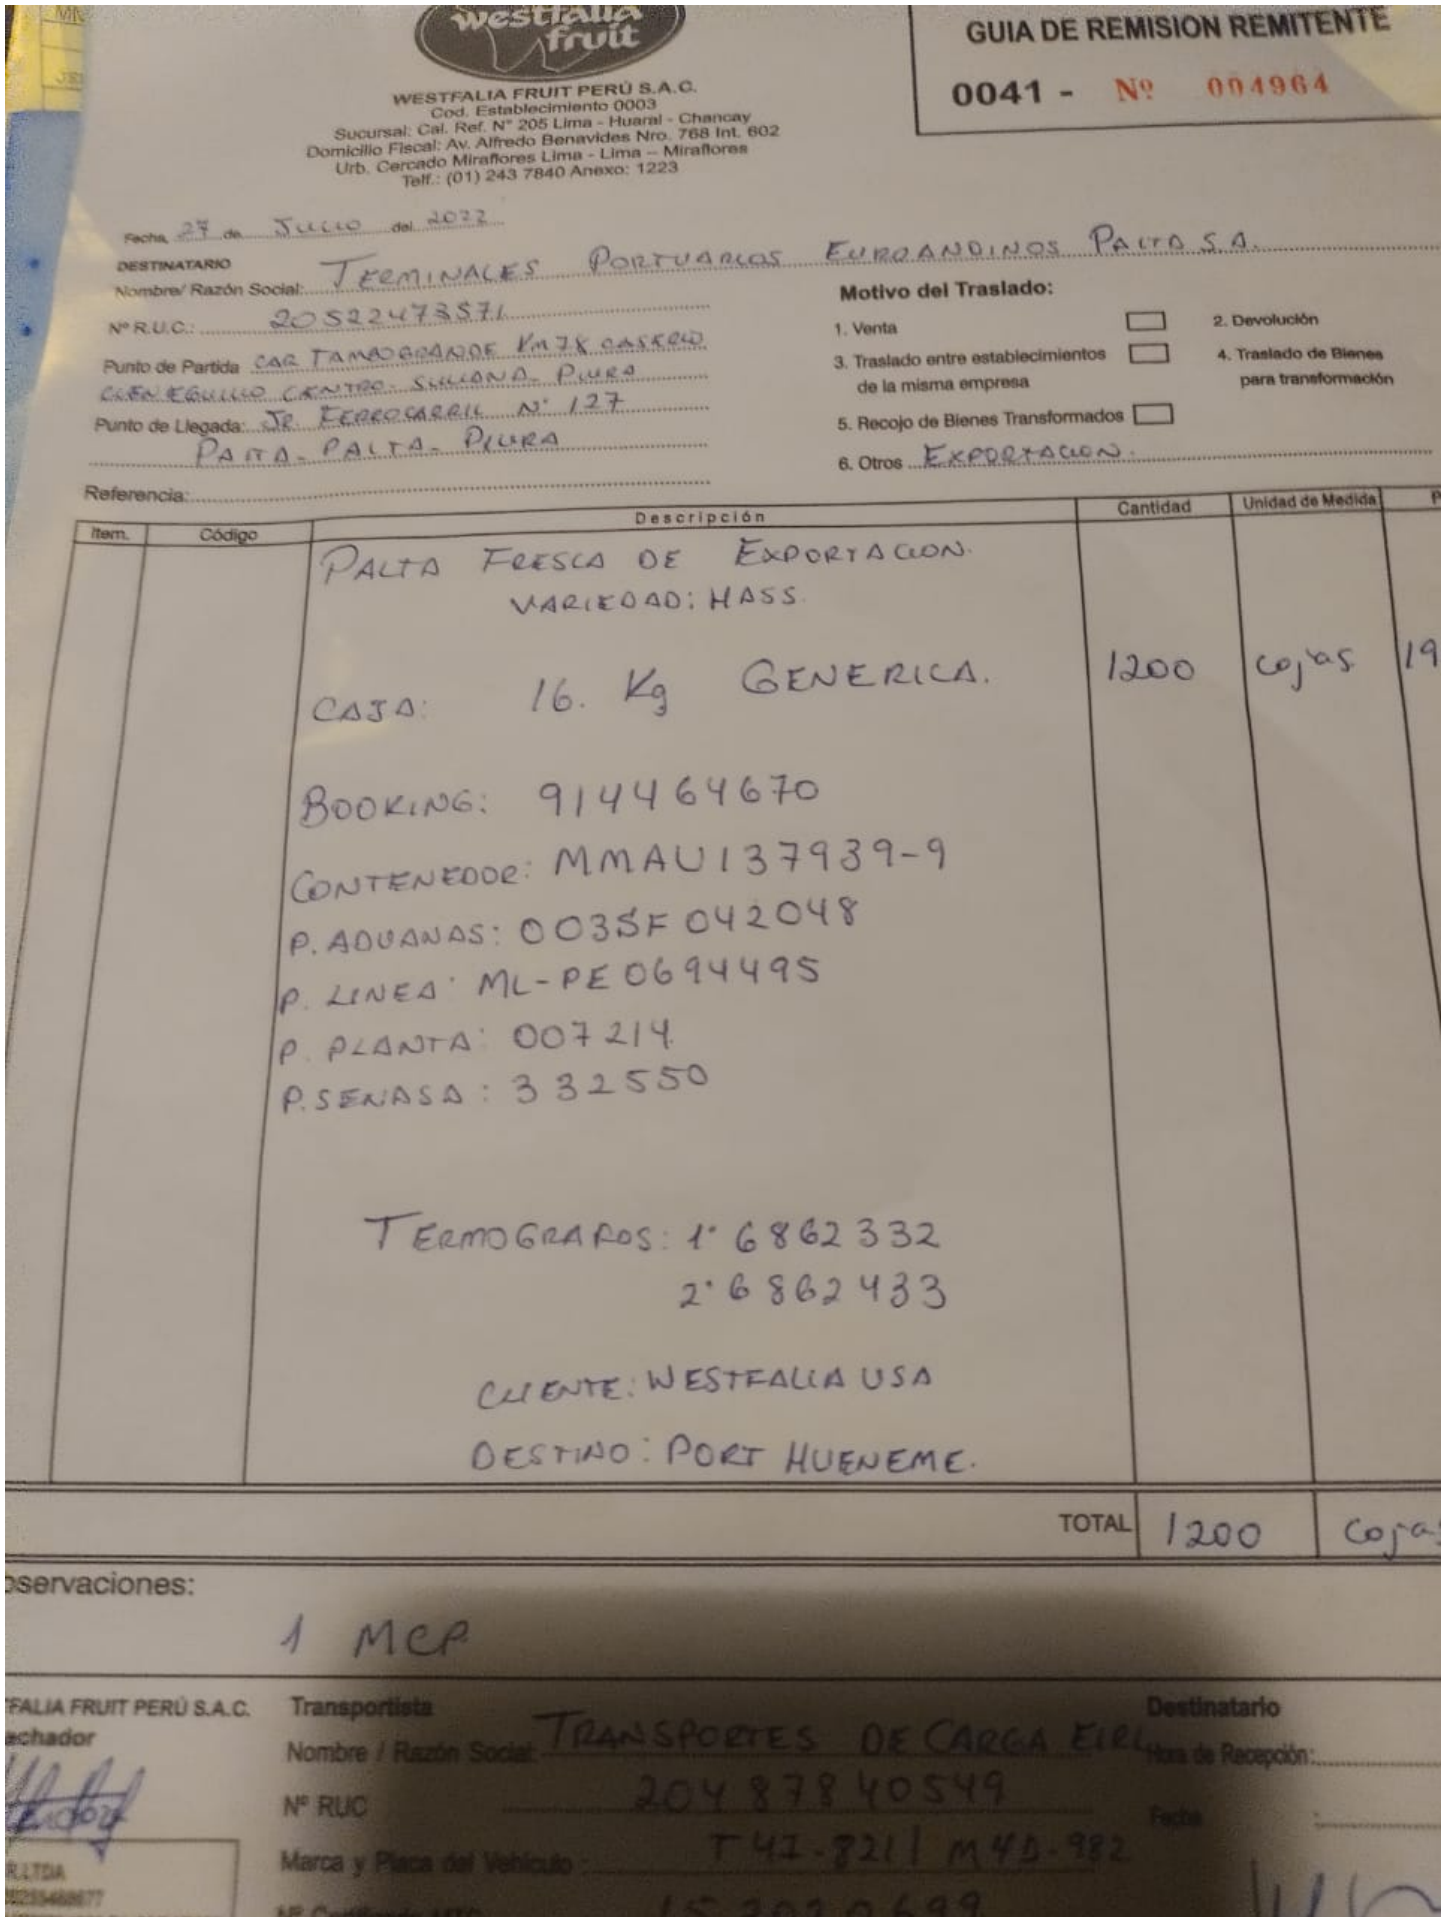 westfalia
fruit
WESTFALIA FRUIT PERÚ S.A.C.
Cod. Establecimiento 0003
Sucursal: Cal. Ref. N° 205 Lima - Huaral - Chancay
Domicilio Fiscal: Av. Alfredo Benavides Nro. 768 Int. 602
Urb. Cercado Miraflores Lima - Lima - Miraflores
Telf.: (01) 243 7840 Anexo: 1223
GUIA DE REMISION REMITENTE
0041 - Nº 004964
Fecha, 27 de JULIO del 2022
DESTINATARIO
Nombre/ Razón Social: TERMINALES PORTUARIOS EUROANDINOS PAITA S.A.
Nº R.U.C.: 20522473571
Punto de Partida CAR TAMBOGRANDE KM 78 CASERIO
CIENEGUILLO CENTRO- SULLANA- PIURA
Punto de Llegada: JR. FERROCARRIL N° 127
PAITA- PAITA- PIURA
Referencia:
Motivo del Traslado:
1. Venta
2. Devolución
3. Traslado entre establecimientos
de la misma empresa
4. Traslado de Bienes
para transformación
5. Recojo de Bienes Transformados
6. Otros EXPORTACION.
Item. Código Descripción Cantidad Unidad de Medida P
PALTA FRESCA DE EXPORTACION.
VARIEDAD: HASS.
CAJA: 16. Kg GENERICA. 1200 cajas 19
BOOKING: 914464670
CONTENEDOR: MMAU137939-9
P. ADUANAS: 003SF042048
P. LINEA: ML-PE0694495
P. PLANTA: 007214.
P. SENASA: 332550
TERMOGRAFOS: 1° 6862332
2° 6862433
CLIENTE: WESTFALIA USA
DESTINO: PORT HUENEME.
TOTAL 1200 Cajas
bservaciones:
1 MCP
FALIA FRUIT PERÚ S.A.C.
achador
Transportista
Nombre / Razón Social: TRANSPORTES DE CARGA EIRL
Nº RUC 20487840549
Marca y Placa del Vehículo:
Destinatario
Hora de Recepción:
Fecha :
R.LTDA